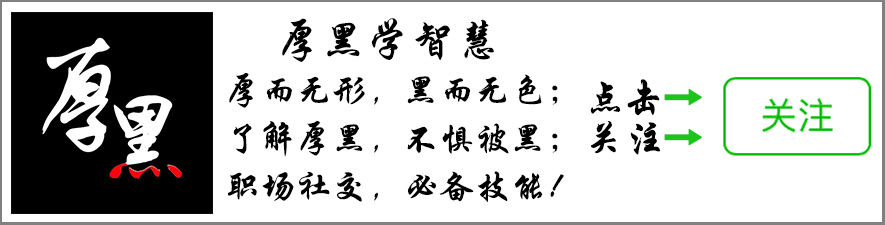 厚黑
厚黑学智慧
厚而无形，黑而无色；
了解厚黑，不惧被黑；
职场社交，必备技能！
点击
关注
关注